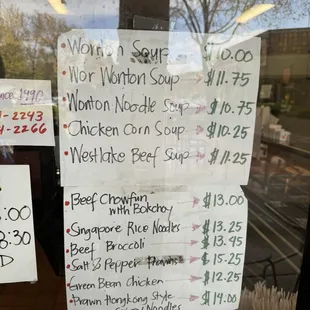 Wonton Soup $10.00
Wor Wonton Soup $11.75
Wonton Noodle Soup $10.75
Chicken Corn Soup $10.25
Westlake Beef Soup $11.25
ince 1496
-2243
1-2266
Beef Chowfun $13.00
with Bokchoy
Singapore Rice Noodles $13.25
Beef Broccoli $13.95
Salt & Pepper Prawns $15.25
Green Bean Chicken $12.25
Prawn Hongkong Style $14.00
Noodles
:00
8:30
D